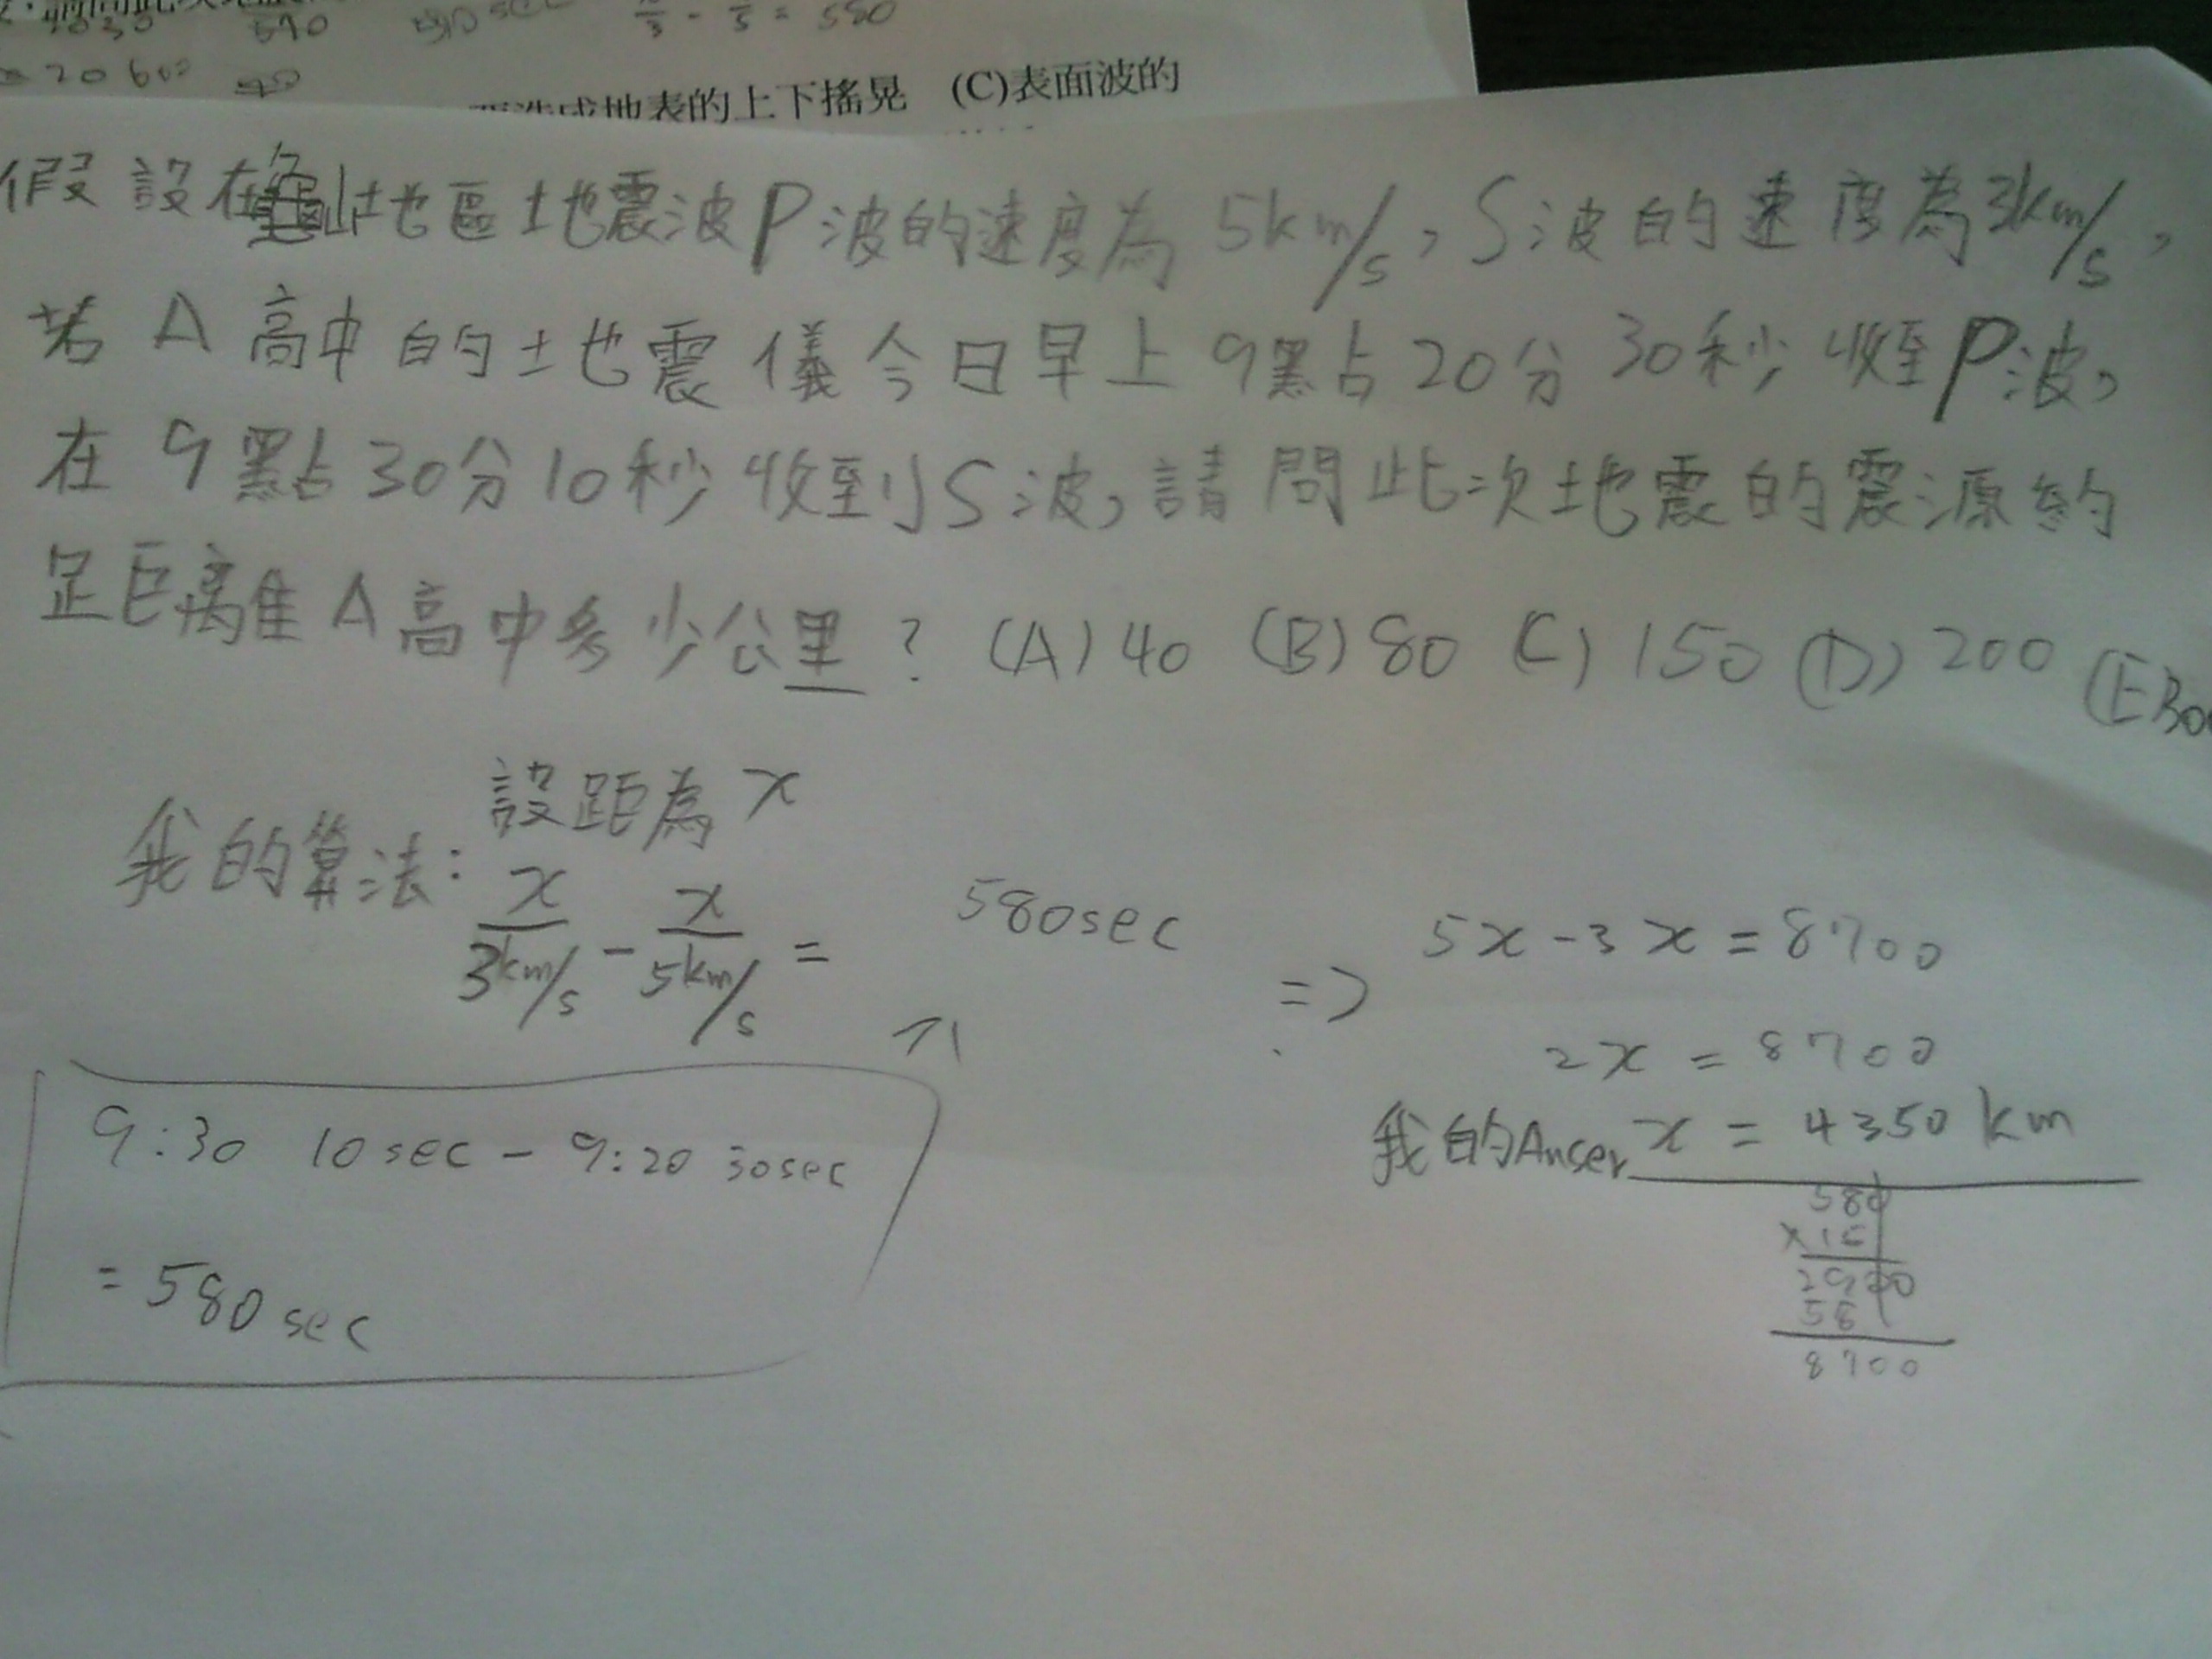 4030 590 sec x/3 - x/5 = 580
20 600
成地表的上下搖晃 (C)表面波的
假設在龜山地區地震波P波的速度為5km/s,S波的速度為3km/s,
若A高中的地震儀今日早上9點20分30秒收到P波,
在9點30分10秒收到S波,請問此次地震的震源約
是距離A高中多少公里?(A)40 (B)80 (C)150 (D)200 (E)300
設距為x
我的算法:
x/3km/s - x/5km/s = 580sec
=> 5x-3x=8700
2x=8700
我的Anser x = 4350km
9:30 10sec - 9:20 30sec
= 580sec
580
×15
2900
58
8700